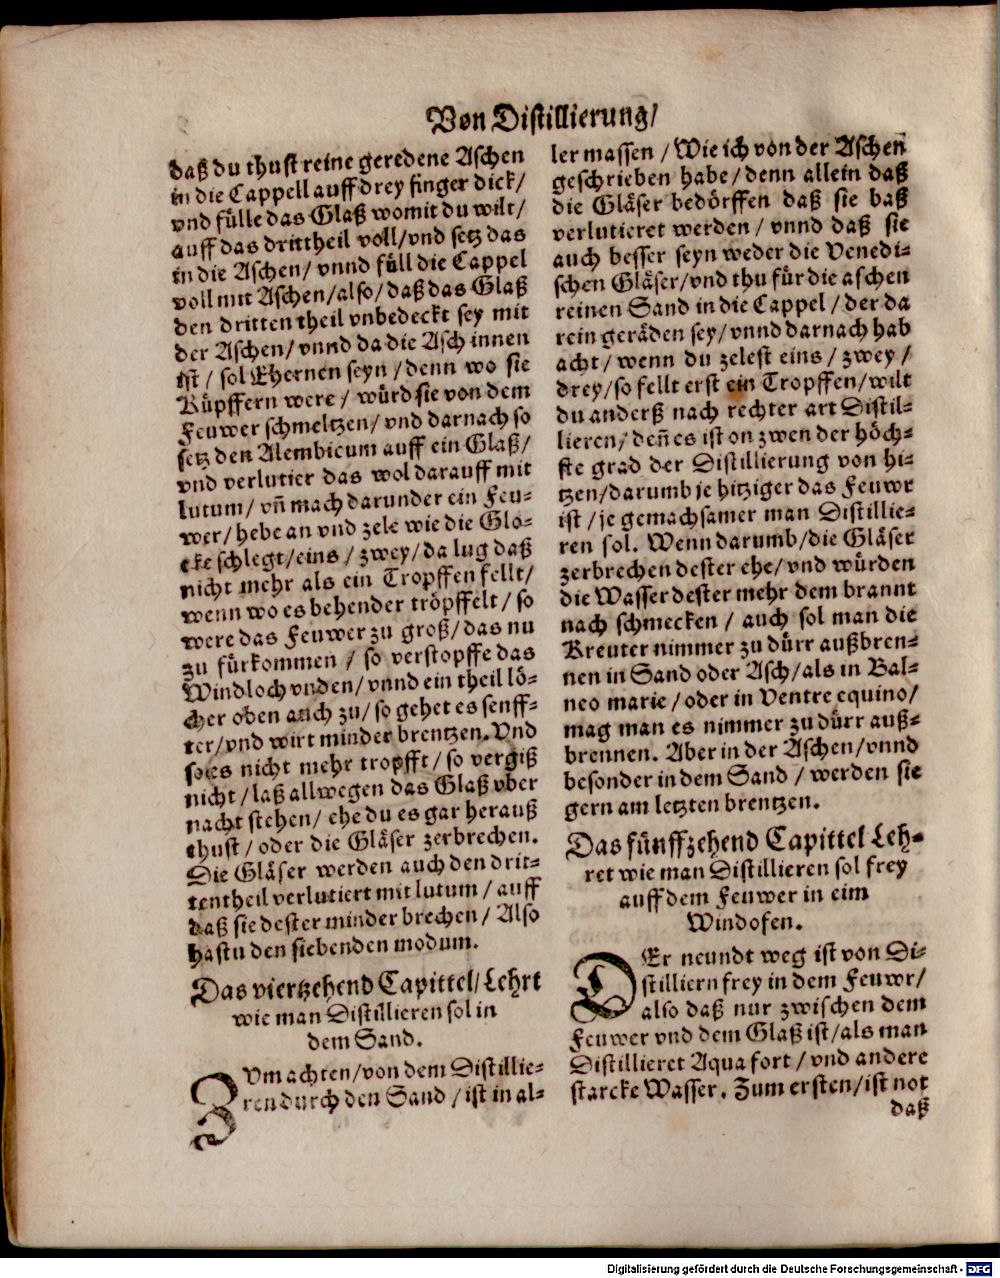 Von Distillierung/
daß du thust reine geredene Aschen
in die Cappell auff drey finger dick/
vnd fülle das Glaß womit du wilt/
auff das drittheil voll/vnd setz das
in die Aschen/ vnnd füll die Cappel
voll mit Aschen/also/ daß das Glaß
den dritten theil vnbedeckt sey mit
der Aschen/ vnnd da die Asch innen
ist / sol Ehernen seyn / denn wo sie
Küpffern were / würd sie von dem
Feuwer schmeltzen/ vnd darnach so
setz den Alembicum auff ein Glaß/
vnd verlutier das wol darauff mit
lutum/ vñ mach darunder ein Feu-
wer/ hebe an vnd zele wie die Glo-
cke schlegt/eins / zwey/ da lug daß
nicht mehr als ein Tropffen fellt/
wenn wo es behender tröpffelt / so
were das Feuwer zu groß/ das nu
zu fürkommen / so verstopffe das
Windloch vnden/ vnnd ein theil lö-
cher oben auch zu/ so gehet es senff-
ter/vnd wirt minder brentzen. Vnd
so es nicht mehr tropfft/ so vergiß
nicht / laß allwegen das Glaß vber
nacht stehen/ ehe du es gar herauß
thust/ oder die Gläser zerbrechen.
Die Gläser werden auch den drit-
tentheil verlutiert mit lutum / auff
daß sie dester minder brechen/ Also
hastu den siebenden modum.
Das viertzehend Capittel/ Lehrt
wie man Distillieren sol in
dem Sand.
ZVm achten/von dem Distillie-
ren durch den Sand / ist in al-
ler massen / Wie ich von der Aschen
geschrieben habe/ denn allein daß
die Gläser bedörffen daß sie baß
verlutieret werden/ vnnd daß sie
auch besser seyn weder die Venedi-
schen Gläser/vnd thu für die aschen
reinen Sand in die Cappel / der da
rein geräden sey/ vnnd darnach hab
acht/ wenn du zelest eins / zwey /
drey/so fellt erst ein Tropffen/wilt
du anderß nach rechter art Distil-
lieren/ deñ es ist on zwen der höch-
ste grad der Distillierung von hi-
tzen/darumb je hitziger das Feuwr
ist / je gemachsamer man Distillie-
ren sol. Wenn darumb/die Gläser
zerbrechen dester ehe/ vnd würden
die Wasser dester mehr dem brannt
nach schmecken / auch sol man die
Kreuter nimmer zu dürr außbren-
nen in Sand oder Asch/als in Bal-
neo marie / oder in Ventre equino/
mag man es nimmer zu dürr auß-
brennen. Aber in der Aschen/vnnd
besonder in dem Sand / werden sie
gern am letzten brentzen.
Das fünffzehend Capittel Leh-
ret wie man Distillieren sol frey
auff dem Feuwer in eim
Windofen.
DEr neundt weg ist von Di-
stilliern frey in dem Feuwr/
also daß nur zwischen dem
Feuwer vnd dem Glaß ist/als man
Distillieret Aqua fort / vnd andere
starcke Wasser. Zum ersten/ist not
daß
Digitalisierung gefördert durch die Deutsche Forschungsgemeinschaft - DFG